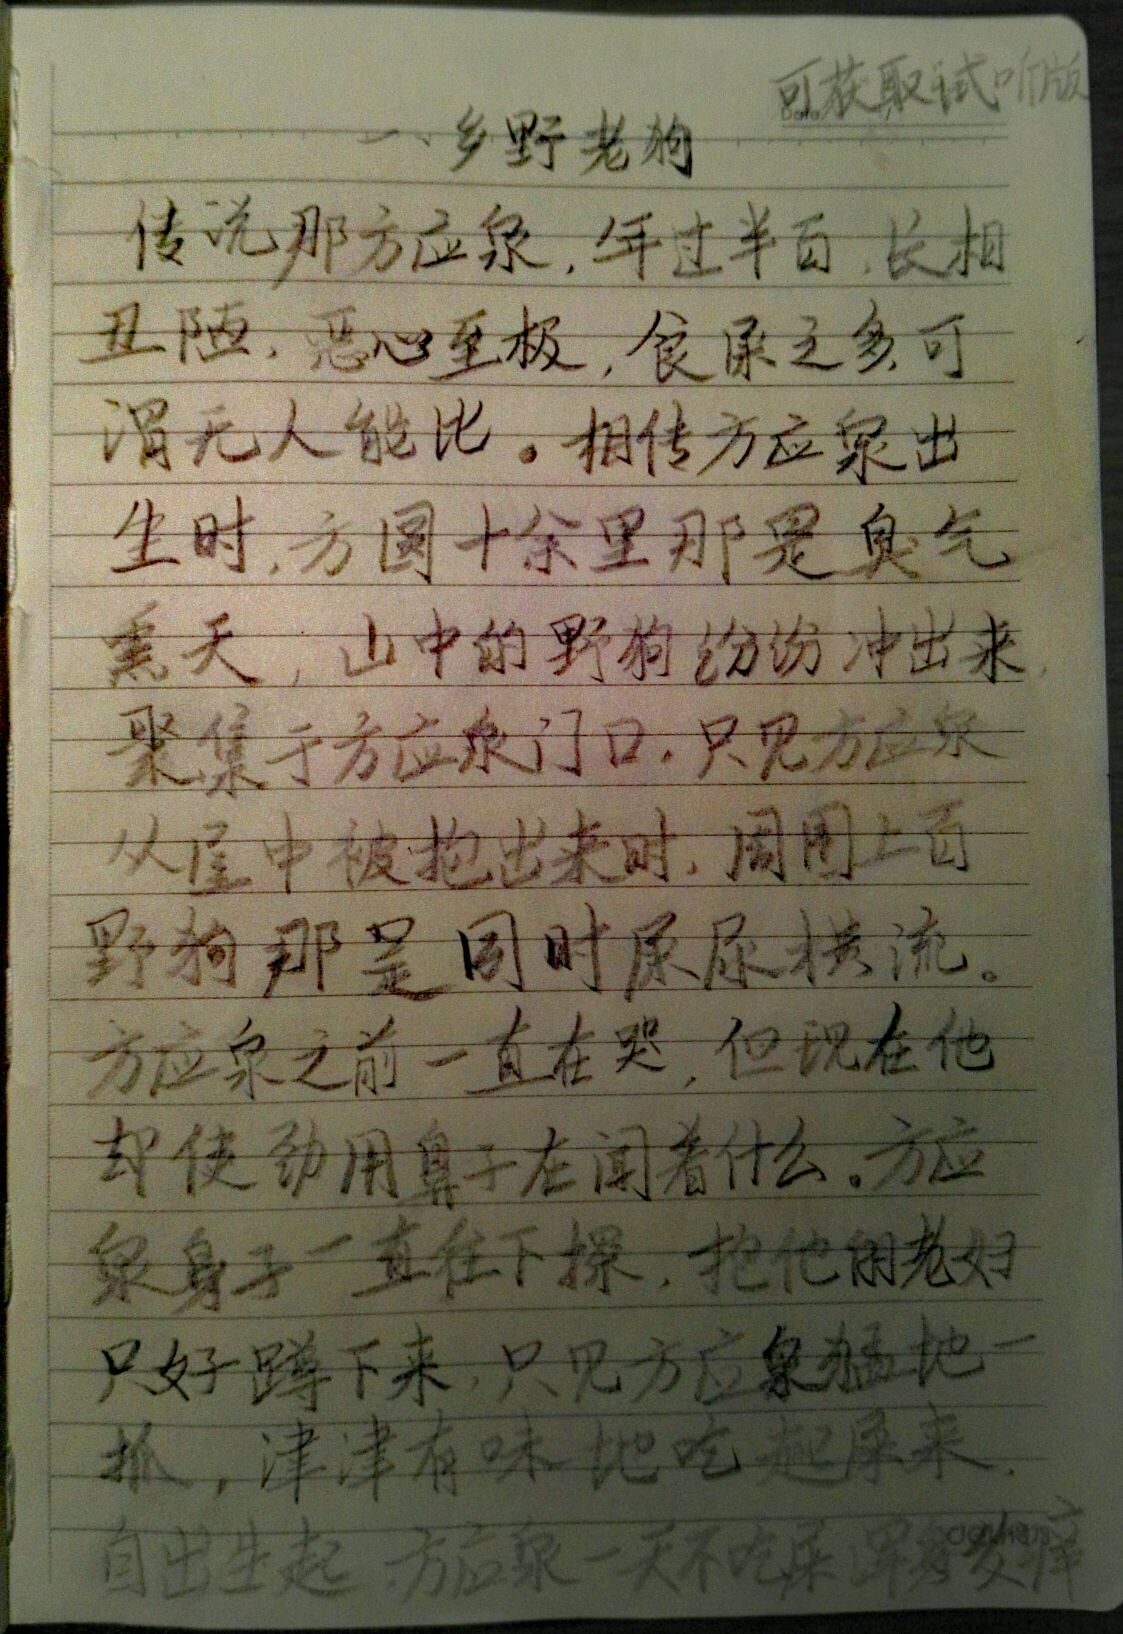 可获取试听版
一、乡野老狗
传说那方应泉，年过半百，长相
丑陋，恶心至极，食屎之多，可
谓无人能比。相传方应泉出
生时，方圆十余里那是臭气
熏天，山中的野狗纷纷冲出来，
聚集于方应泉门口。只见方应泉
从屋中被抱出来时，周围上百
野狗那是同时屎尿横流。
方应泉之前一直在哭，但现在他
却使劲用鼻子在闻着什么。方应
泉身子一直往下探，抱他的老妇
只好蹲下来，只见方应泉猛地一
抓，津津有味地吃起屎来，
自出生起，方应泉一天不吃屎浑身发痒